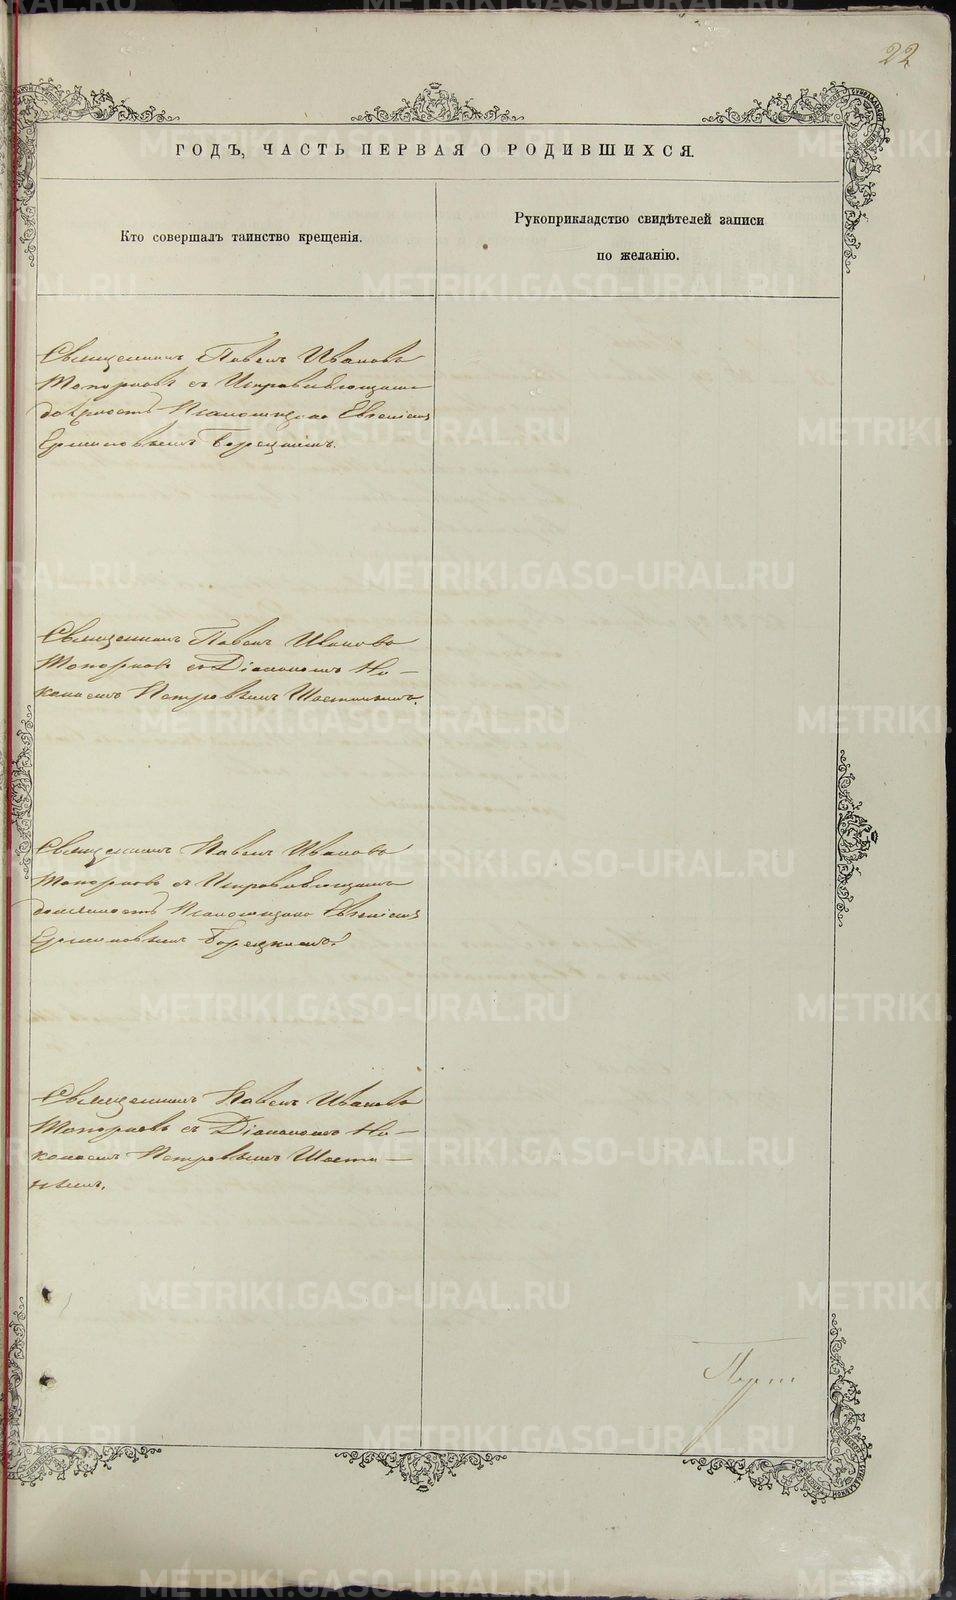 22
ГОДЪ, ЧАСТЬ ПЕРВАЯ О РОДИВШИХСЯ.
Кто совершалъ таинство крещенія.
Рукоприкладство свидѣтелей записи
по желанію.
Священникъ Павелъ Ивановъ
Топорковъ съ Исправляющимъ
должность Псаломщика Евгеніемъ
Ермиловымъ Борецкимъ.
Священникъ Павелъ Ивановъ
Топорковъ съ Діакономъ Ни-
колаемъ Петровымъ
Священникъ Павелъ Ивановъ
Топорковъ съ Исправляющимъ
должность Псаломщика Евгеніемъ
Ермиловымъ Борецкимъ.
Священникъ Павелъ Ивановъ
Топорковъ съ Діакономъ Ни-
колаемъ Петровымъ
METRIKI.GASO-URAL.RU